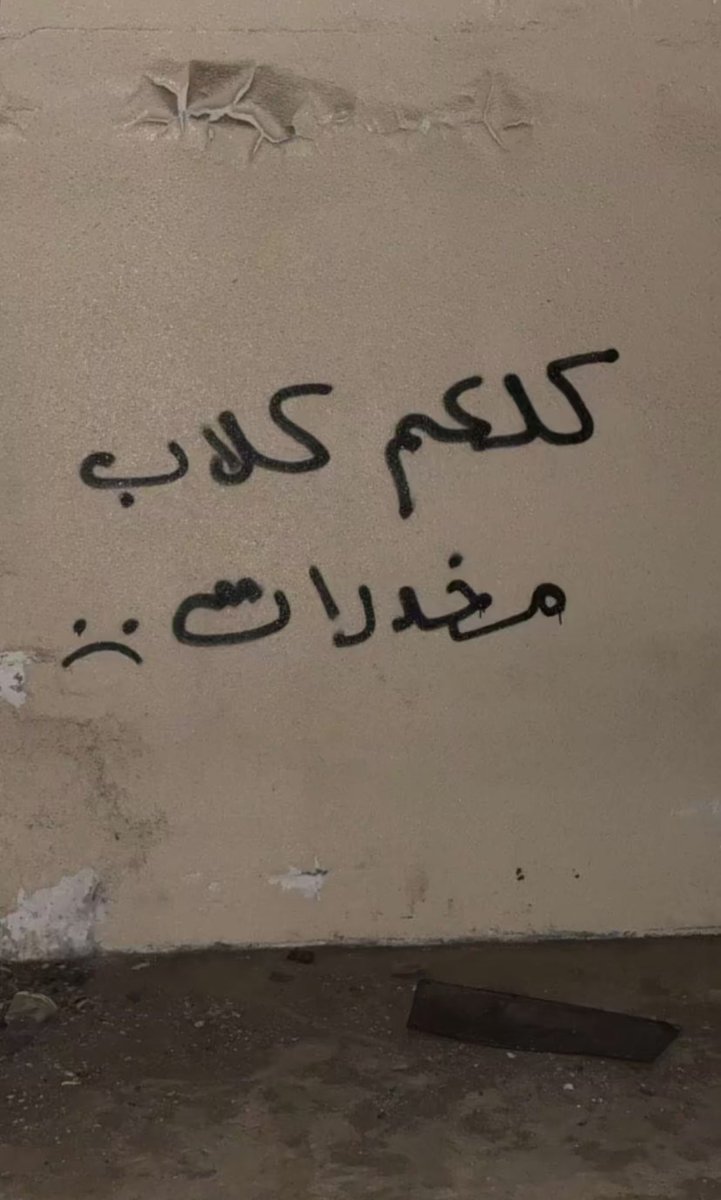 كلكم كلاب
مخدرات :(